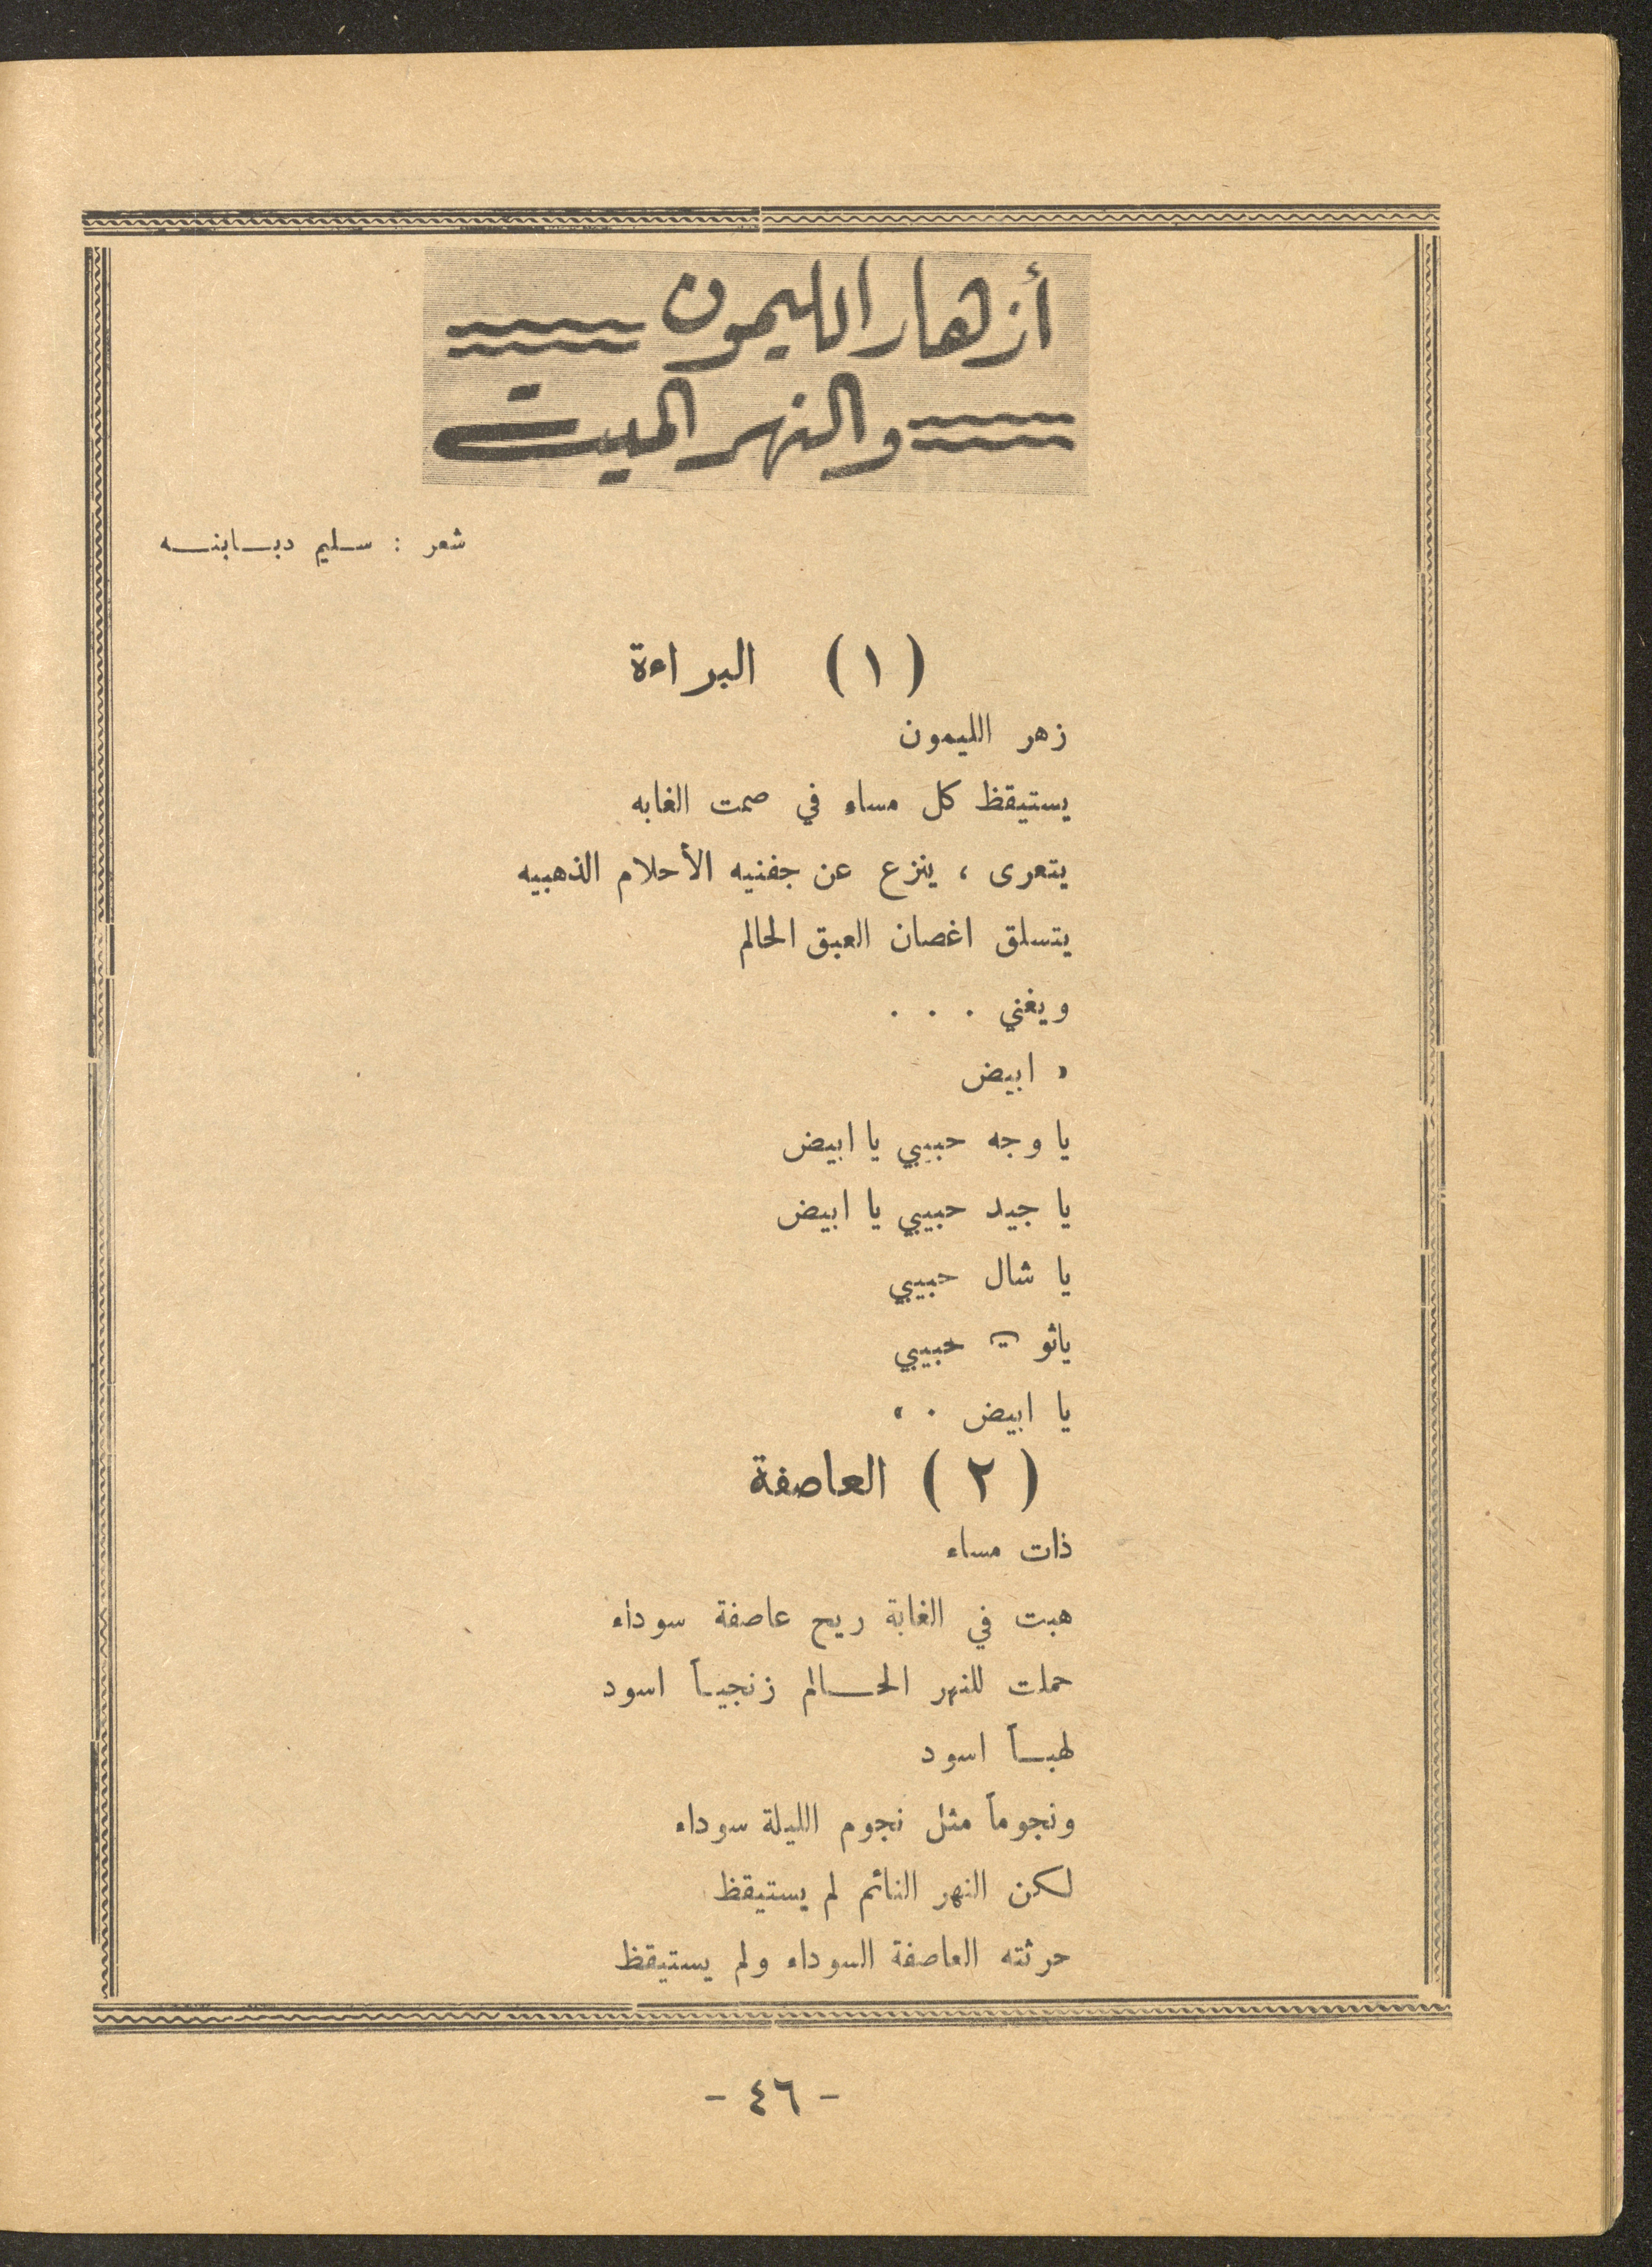 أزهار الليمون
والنهر الميت
شعر : سليم دبابنه
( ١ ) البراءة
زهر الليمون
يستيقظ كل مساء في صمت الغابه
يتعرى ، ينزع عن جفنيه الأحلام الذهبيه
يتسلق اغصان العبق الحالم
ويغني . . .
« ابيض
يا وجه حبيبي يا ابيض
يا جيد حبيبي يا ابيض
يا شال حبيبي
ياثوب حبيبي
يا ابيض . »
( ٢ ) العاصفة
ذات مساء
هبت في الغابة ريح عاصفة سوداء
حملت للنهر الحالم زنجياً اسود
لهباً اسود
ونجوماً مثل نجوم الليلة سوداء
لكن النهر النائم لم يستيقظ
حرثته العاصفة السوداء ولم يستيقظ
- ٤٦ -